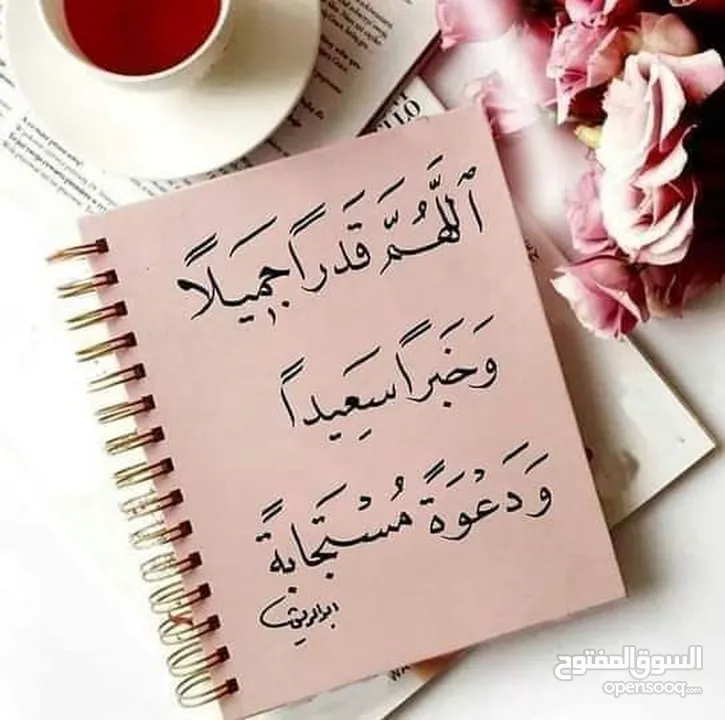 ٱللَّهُمَّ قَدَراً جَمِيَلاً
وَخَبَراً سَعِيداً
وَدَعْوَةً مُسْتَجَابَةً
السوق المفتوح
opensooq.com